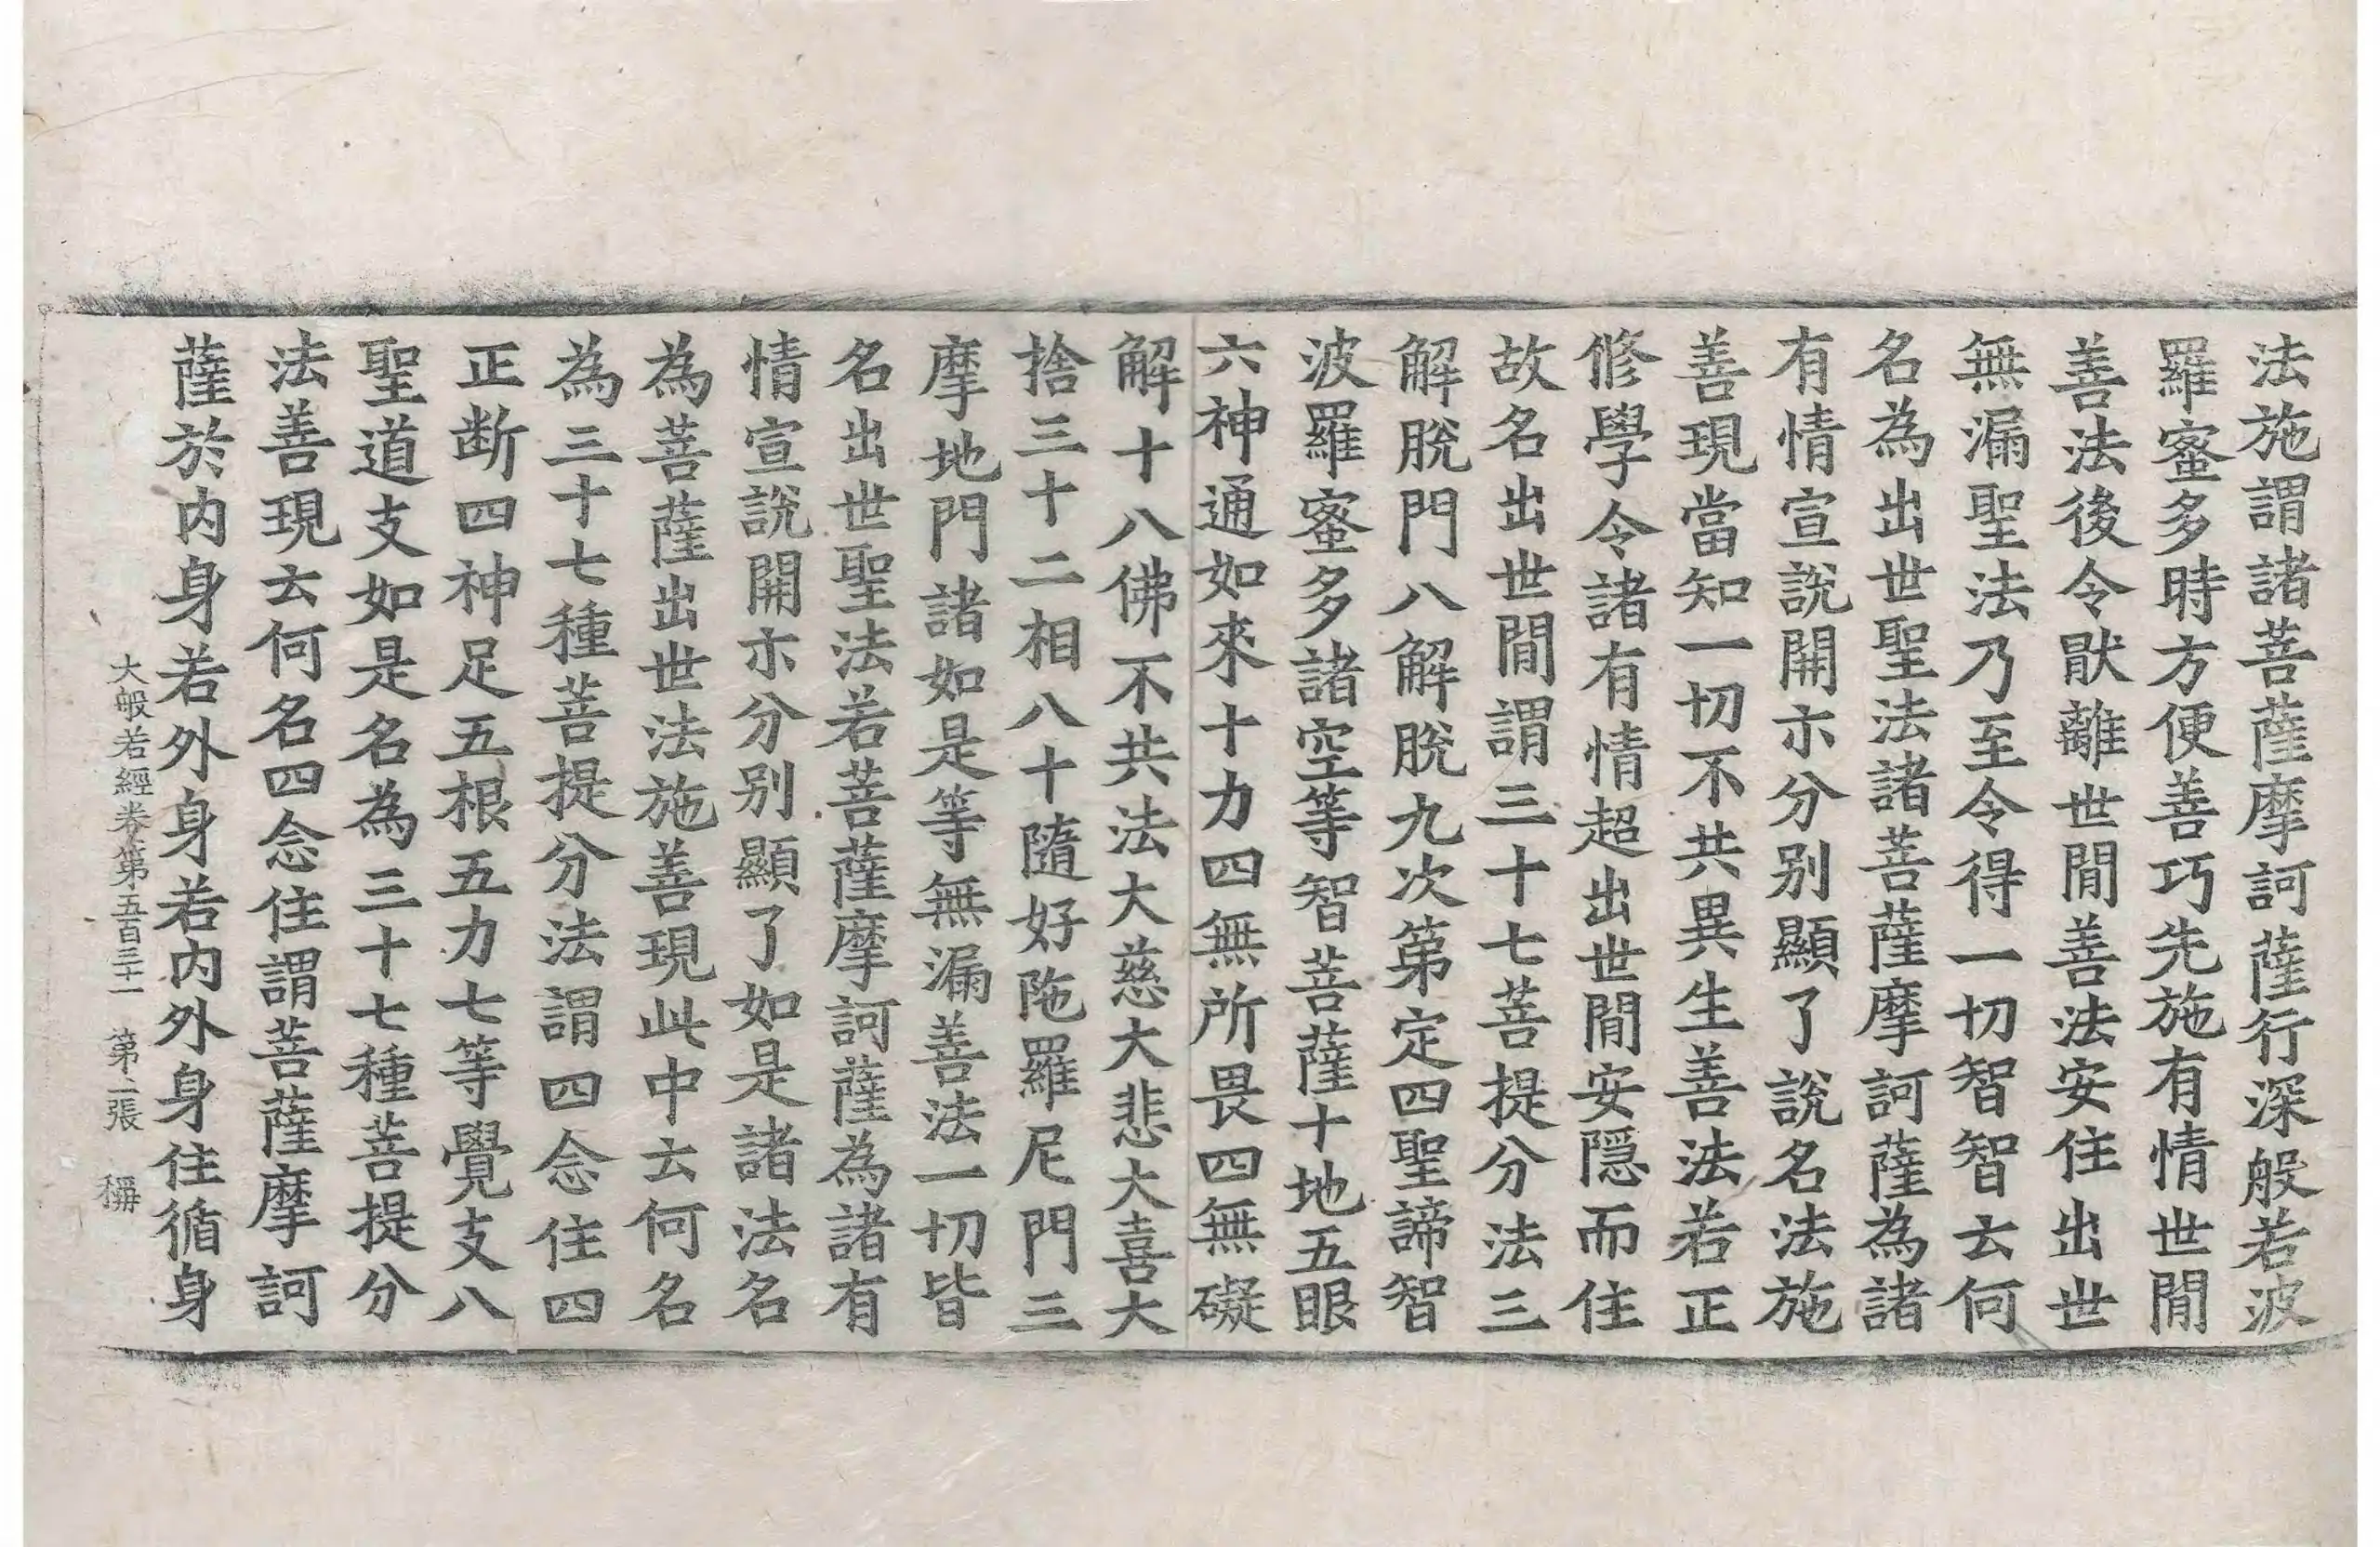 法施謂諸菩薩摩訶薩行深般若波
羅蜜多時方便善巧先施有情世閒
善法後令猒離世閒善法安住出世
無漏聖法乃至令得一切智智云何
名為出世聖法諸菩薩摩訶薩為諸
有情宣說開示分别顯了說名法施
善現當知一切不共異生善法若正
修學令諸有情超出世閒安隱而住
故名出世閒謂三十七菩提分法三
解脫門八解脫九次第定四聖諦智
波羅蜜多諸空等智菩薩十地五眼
六神通如來十力四無所畏四無礙
解十八佛不共法大慈大悲大喜大
捨三十二相八十隨好陁羅尼門三
摩地門諸如是等無漏善法一切皆
名出世聖法若菩薩摩訶薩為諸有
情宣說開示分别顯了如是諸法名
為菩薩出世法施善現此中云何名
為三十七種菩提分法謂四念住四
正断四神足五根五力七等覺支八
聖道支如是名為三十七種菩提分
法善現云何名四念住謂菩薩摩訶
薩於内身若外身若内外身住循身
大般若經卷第五百三十一　第二張　稱